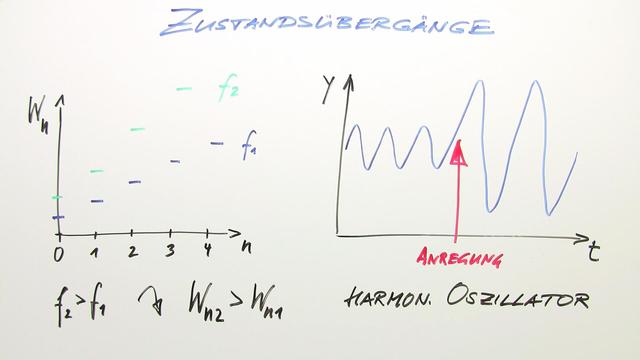 ZUSTANDSÜBERGÄNGE
Wn
f2
f1
0 1 2 3 4 n
f2 > f1 ↷ Wn2 > Wn1
y
t
ANREGUNG
HARMON. OSZILLATOR